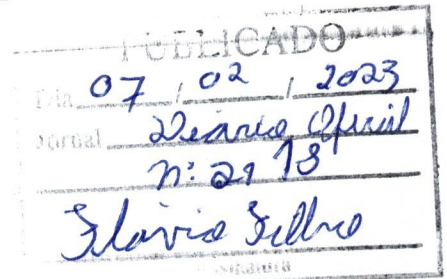 PUBLICADO
Dia 07 / 02 / 2023
Jornal Diário Oficial
nº 2118
Flávio
Assinatura